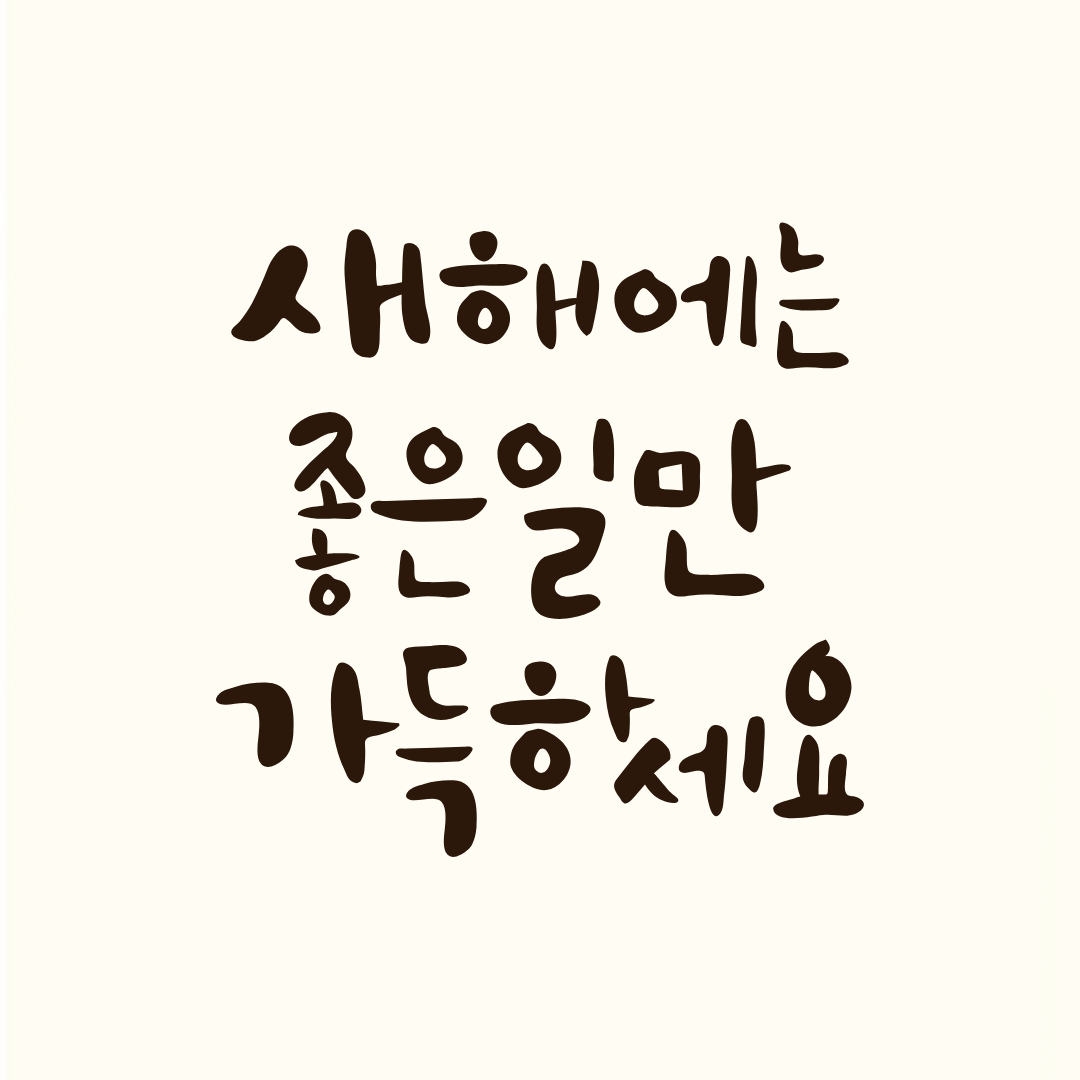 새해에는
좋은일만
가득하세요